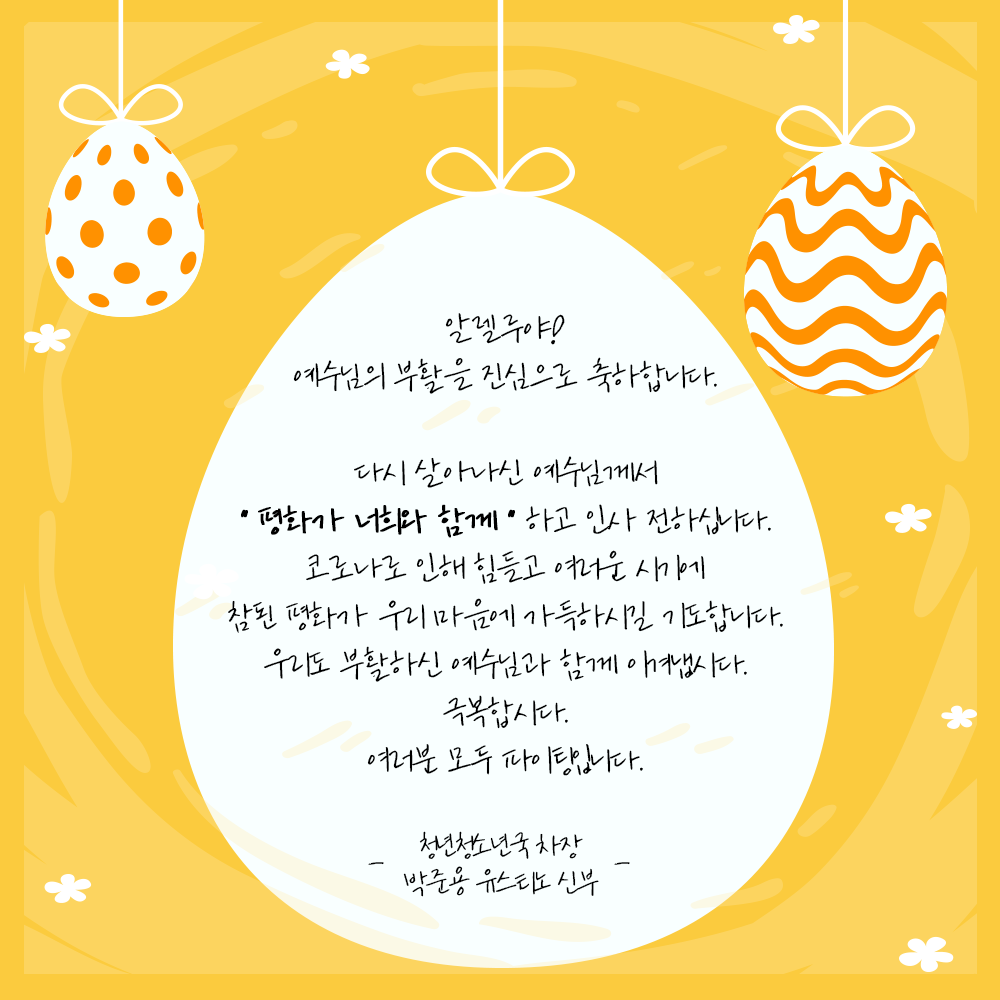 알렐루야!
예수님의 부활을 진심으로 축하합니다.
다시 살아나신 예수님께서
"평화가 너희와 함께" 하고 인사 전하십니다.
코로나로 인해 힘들고 어려운 시기에
참된 평화가 우리 마음에 가득하시길 기도합니다.
우리도 부활하신 예수님과 함께 이겨냅시다.
극복합시다.
여러분 모두 파이팅입니다.
청년청소년국 차장
- 박준용 유스티노 신부 -